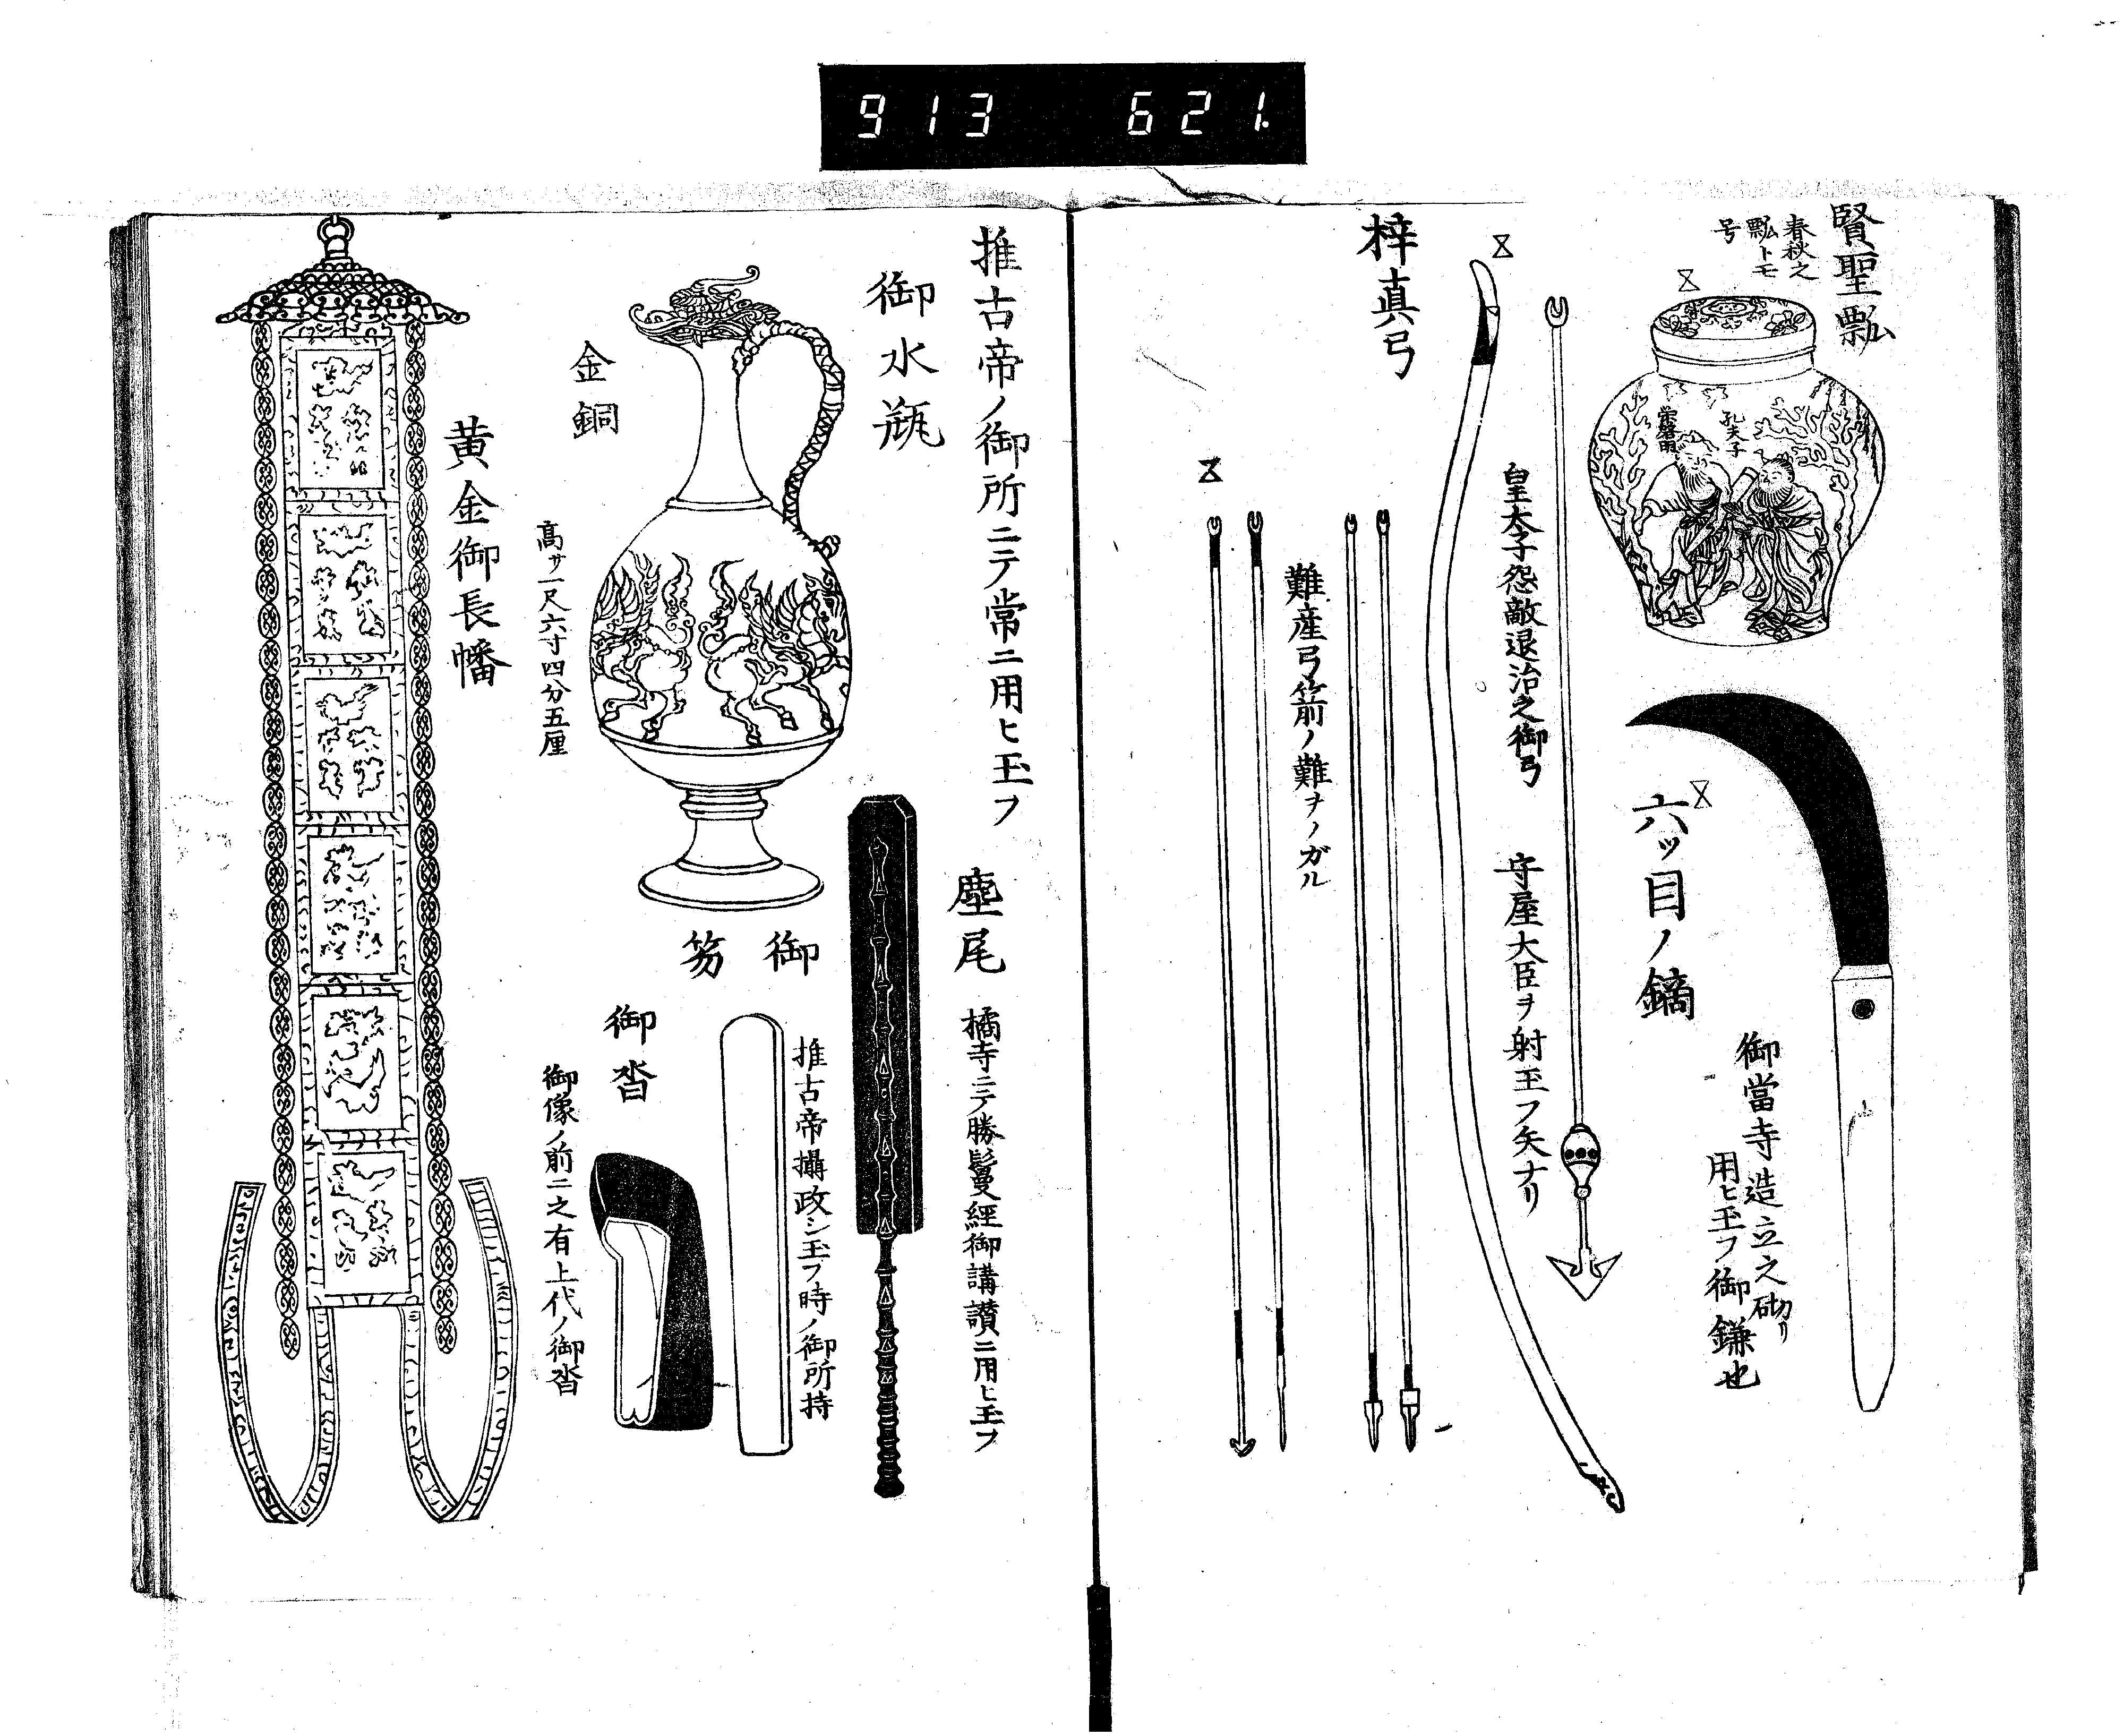 913 621.
賢聖瓢
春秋之
瓢トモ
号
孔夫子
栄啓期
御當寺造立之砌リ
用ヒ玉フ御鎌也
六ツ目ノ鏑
皇太子怨敵退治之御弓
守屋大臣ヲ射玉フ矢ナリ
梓真弓
難産弓箭ノ難ヲノガル
推古帝ノ御所ニテ常ニ用ヒ玉フ
御水瓶
金銅
高サ一尺六寸四分五厘
塵尾
橘寺ニテ勝鬘經御講讃ニ用ヒ玉フ
御笏
推古帝攝政シ玉フ時ノ御所持
御沓
御像ノ前ニ之有上代ノ御沓
黄金御長幡